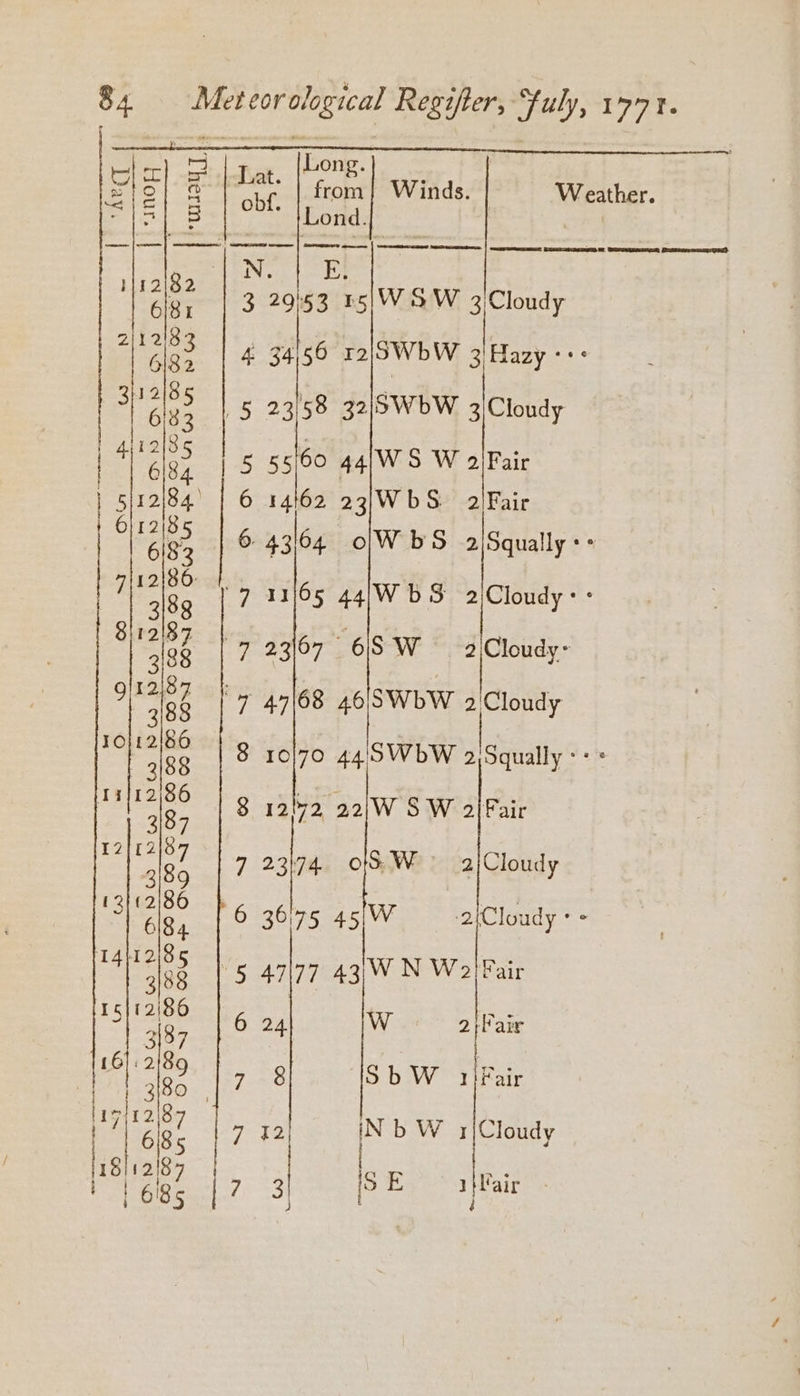 84 Meteorological Regiſter, July, 1771.
Day. | Hour. | Therm. | Lat. obſ. | Long. from Lond. | Winds. | Weather.
N. | E.
1|12|82
6|81 | 3 29|53 15|W S W 3|Cloudy
2|12|83
6|82 | 4 34|56 12|SWbW 3|Hazy ···
3|12|85
6|83 | 5 23|58 32|SWbW 3|Cloudy
4|12|85
6|84 | 5 55|60 44|W S W 2|Fair
5|12|84 | 6 14|62 23|W b S 2|Fair
6|12|85
6|83 | 6 43|64 0|W b S 2|Squally ··
7|12|86
3|88 | 7 11|65 44|W b S 2|Cloudy ··
8|12|87
3|88 | 7 23|67 6|S W 2|Cloudy·
9|12|87
3|88 | 7 47|68 46|SWbW 2|Cloudy
10|12|86
3|88 | 8 10|70 44|SWbW 2|Squally ···
11|12|86
3|87 | 8 12|72 22|W S W 2|Fair
12|12|87
3|89 | 7 23|74 0|S W 2|Cloudy
13|12|86
6|84 | 6 36|75 45|W 2|Cloudy ··
14|12|85
3|88 | 5 47|77 43|W N W 2|Fair
15|12|86
3|87 | 6 24| |W 2|Fair
16|12|89
3|80 | 7 8| |S b W 1|Fair
17|12|87
6|85 | 7 12| |N b W 1|Cloudy
18|12|87
6|85 | 7 3| |S E 1|Fair